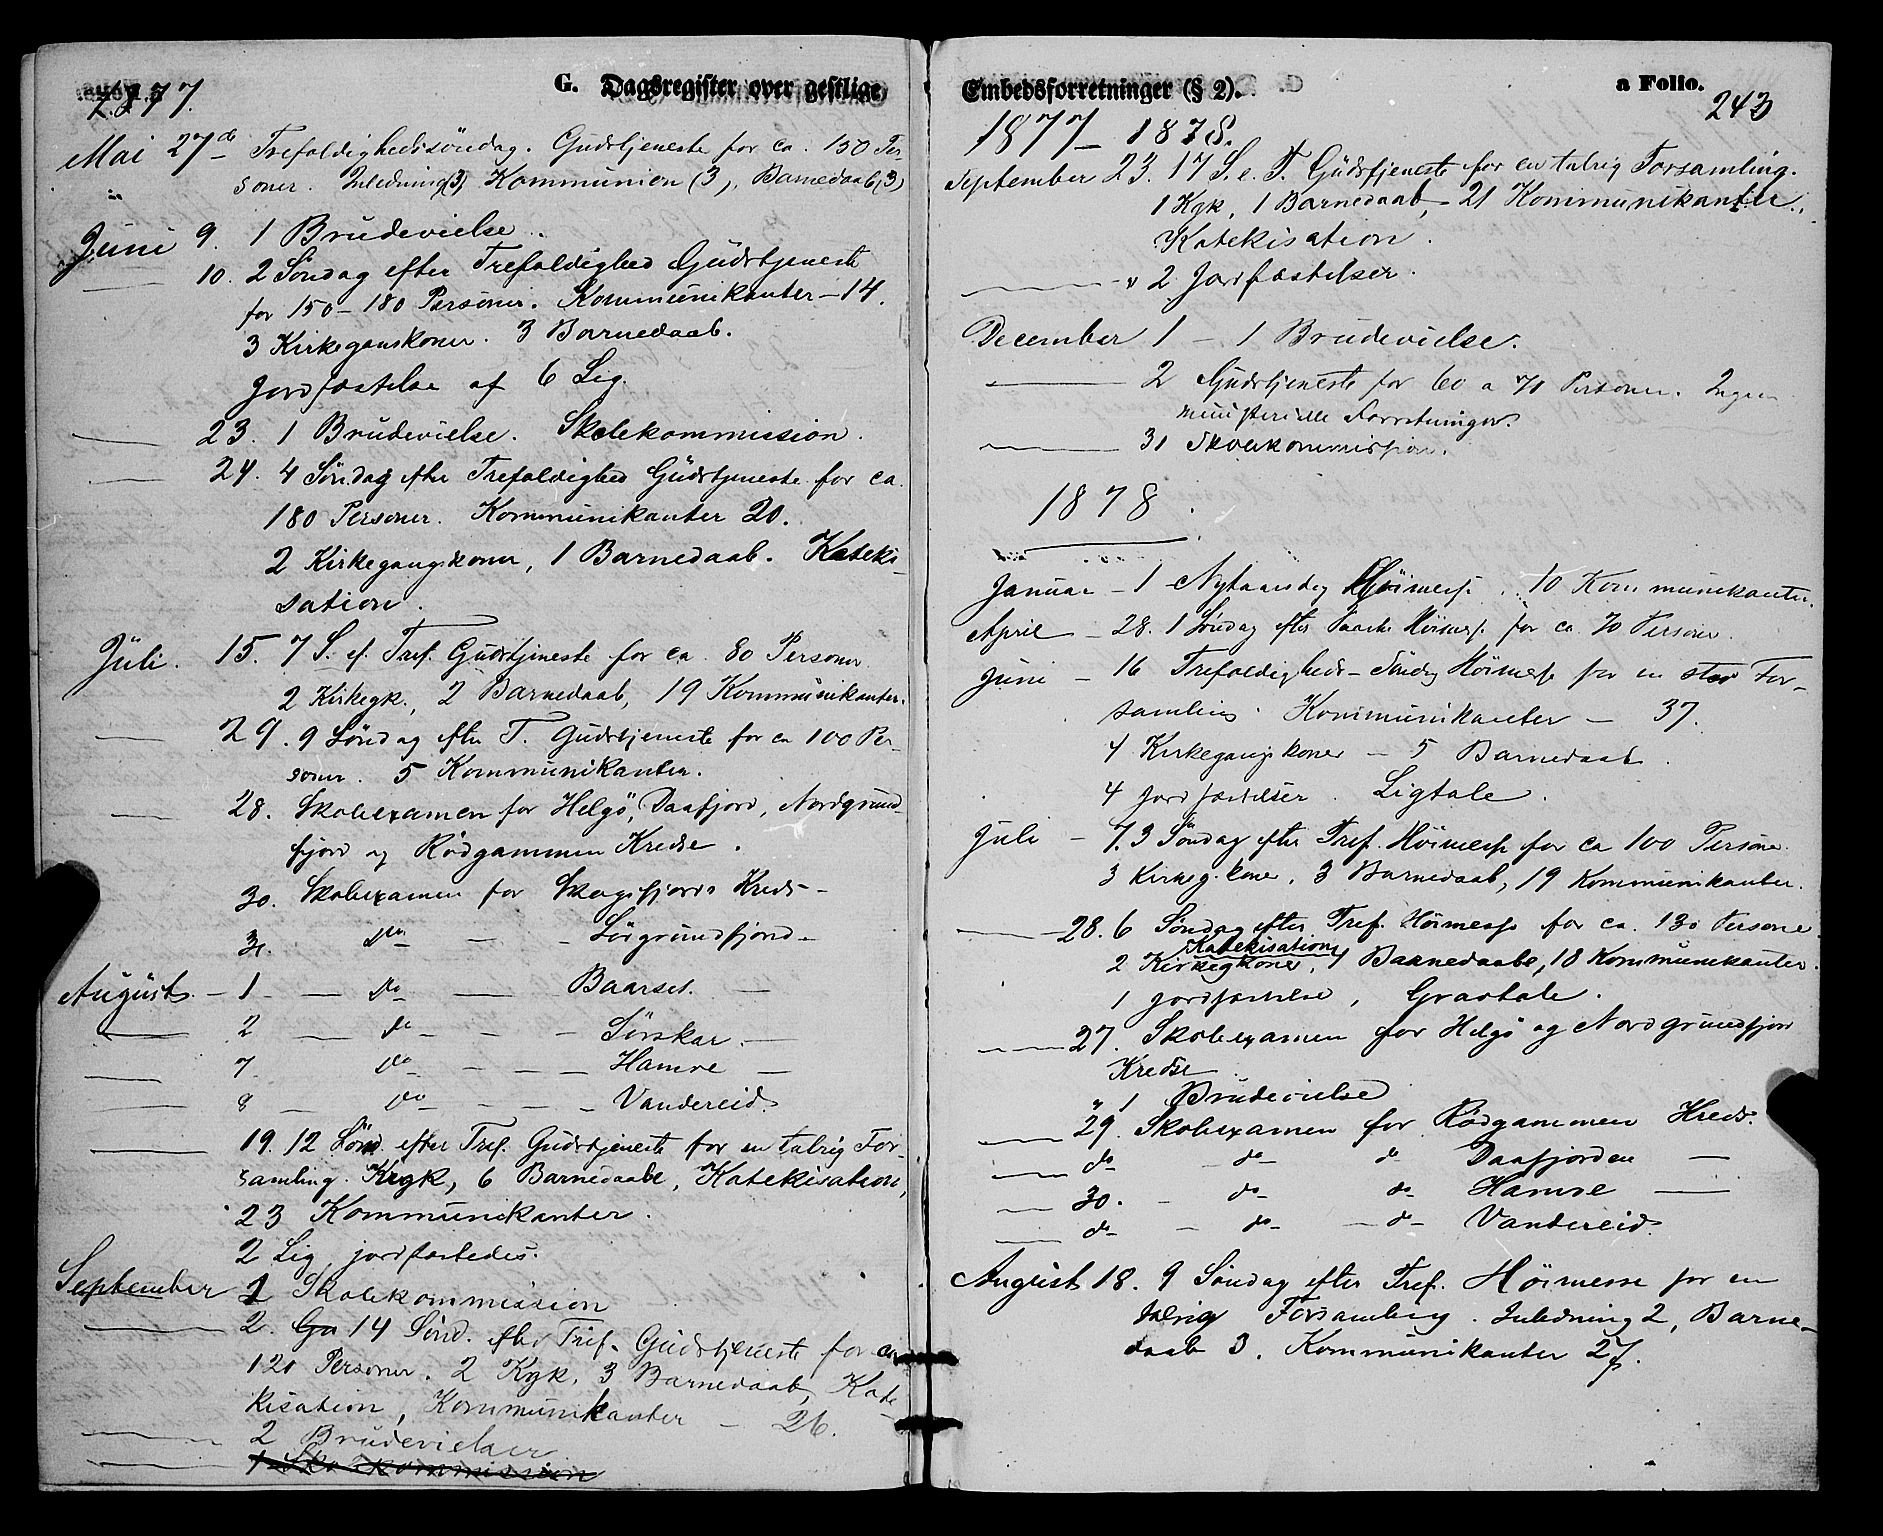 G. Dagsregister over gestlige
1877.
Mai 27de Trefoldighedssöndag. Gudstjeneste for ca. 150 Per-
soner. Inledning (3) Kommunion (3), Barnedaab (3)
Juni 9. 1 Brudevielse.
10. 2 Söndag efter Trefoldighed Gudstjeneste
for 150-180 Personer. Kommunikanter - 14.
3 Kirkegangskoner. 3 Barnedaab.
Jordfæstelse af 6 Lig.
23. 1 Brudevielse. Skolekommission.
24. 4 Söndag efter Trefoldighed Gudstjeneste for ca.
180 Personer. Kommunikanter 20.
2 Kirkegangskoner, 1 Barnedaab. Kateki-
sation.
Juli. 15. 7 S. ef. Tref. Gudstjeneste for ca. 80 Personer
2 Kirkegk., 2 Barnedaab, 19 Kommunikanter.
29. 9 Söndag efter T. Gudstjeneste for ca 100 Per-
soner. 5 Kommunikanter.
28. Skolexamen for Helgö, Daafjord, Nordgrund-
fjord og Rödgammen Kredse.
30. Skolexamen for Skogsfjords Kreds-
31. do - - Sörgrundfjord -
August. - 1 - do - Baarset. -
2 - do - - - Sörskar. -
7 - do - - - Hamre -
8 - do - - - Vandereid.
19. 12 Sönd. efter Tref. Gudstjeneste for en talrig For-
samling. Krgk, 6 Barnedaabe, Katekisation,
23 Kommunikanter.
2 Lig jordfæstedes.
September 1 Skolekommission
2. Gu 14 Sönd. efter Tref. Gudstjeneste for ca
120 Personer. 2 Kgk. 3 Barnedaab, Kate-
kisation, Kommunikanter - 26.
2 Brudevielser
1 Skolekommission
Embedsforretninger (§ 2).
a Folio.
243
1877 - 1878.
September 23. 17 S. e. T. Gudstjeneste for en talrig Forsamling.
1 Kgk, 1 Barnedaab, - 21 Kommunikanter.
Katekisation.
" 2 Jordfæstelser.
December 1 - 1 Brudevielse.
2 Gudstjeneste for 60 a 70 Personer. Ingen
ministerielle Forretninger.
31 Skolekommission.
1878.
Januar - 1 Nytaarsdag Höimesse. 10 Kommunikanter.
April - 28. 1 Söndag efter Paaske Höimesse for ca 70 Personer.
Juni - 16 Trefoldigheds-Söndag Höimesse for en stor For-
samling. Kommunikanter - 37.
4 Kirkegangskoner - 5 Barnedaab.
4 Jordfæstelser. Ligtale.
Juli - 7. 3 Söndag efter Tref. Höimesse for ca 100 Personer
3 Kirkeg. koner, 3 Barnedaab, 19 Kommunikanter.
28. 6 Söndag efter Tref. Höimesse for ca. 130 Personer.
Katekisation
2 Kirkegkoner, 1 Barnedaabe, 18 Kommunikanter.
1 Jordfæstelse, Gravtale.
27. Skolexamen for Helgö og Nordgrundfjord
Kredse
" 1 Brudevielse
29. Skolexamen for Rödgammen Kreds.
do - do - do Daafjorden -
30. - do - do - Hamre -
do - do - do - Vandereid.
August 18. 9 Söndag efter Tref. Höimesse for en
talrig Forsamling. Inledning 2, Barne-
daab 3. Kommunikanter 27.